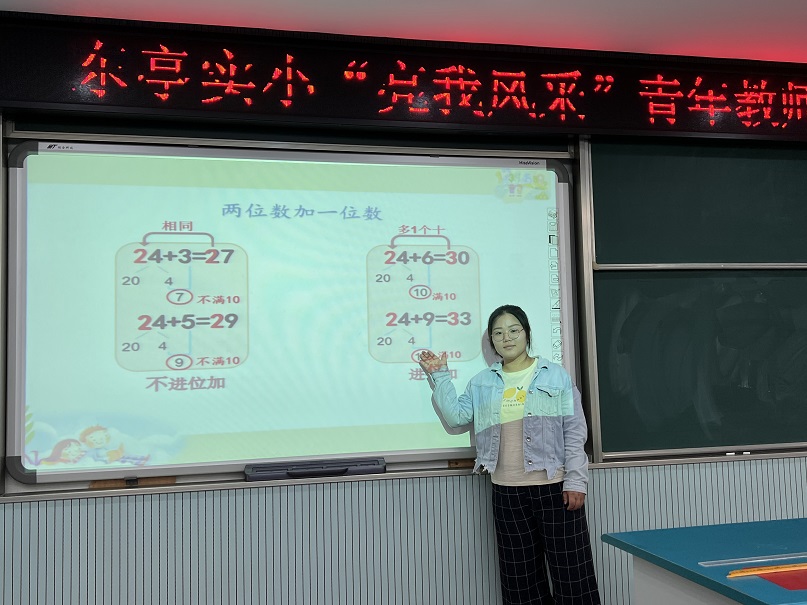 东亭实小“亮我风采”青年教师
两位数加一位数
相同
24+3=27
20 4
7 不满10
24+5=29
20 4
9 不满10
不进位加
多1个十
24+6=30
20 4
10 满10
24+9=33
20 4
满10
进位加